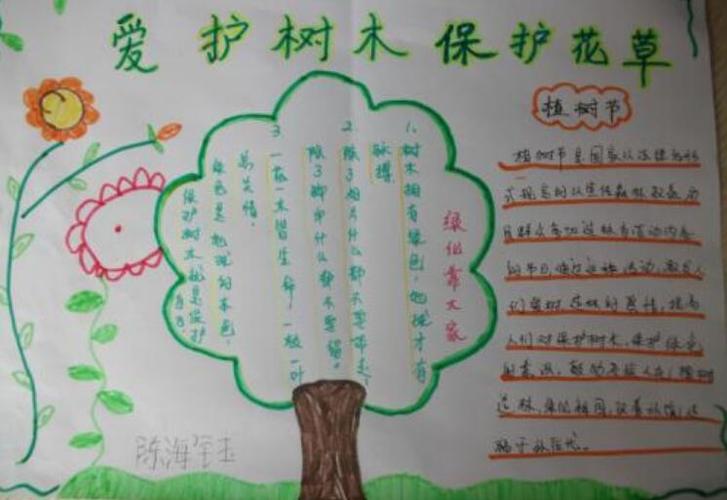 爱护树木保护花草
绿化靠大家
1、树木拥有绿色,地球才有
脉搏
2、除了相片什么都不要带走,
除了脚印什么都不要留。
3、一花一木皆生命,一枝一叶
总关情。
绿色是地球的本色,
保护树木就是保护
自己
植树节
植树节是国家以法律形
式规定的以宣传森林效益
群众参加造林为活动内容
的节日,通过这种活动,
们爱树造林的感情,提高
人们对保护树木,保护绿色
造林,绿化祖国,改善环境,
陈海